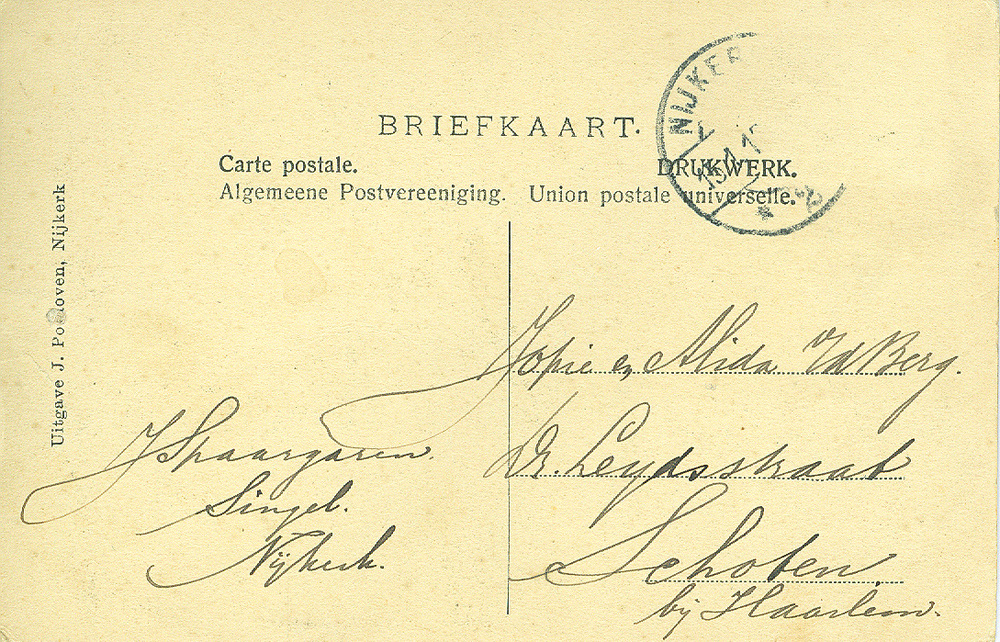 BRIEFKAART.
Carte postale. DRUKWERK.
Algemeene Postvereeniging. Union postale universelle.
NIJKER
Uitgave J. Po oven, Nijkerk
Jopie en Alida vd Berg.
Dr. Leydsstraat
Schoten
bij Haarlem.
J Spaargaren.
Singel.
Nijkerk.